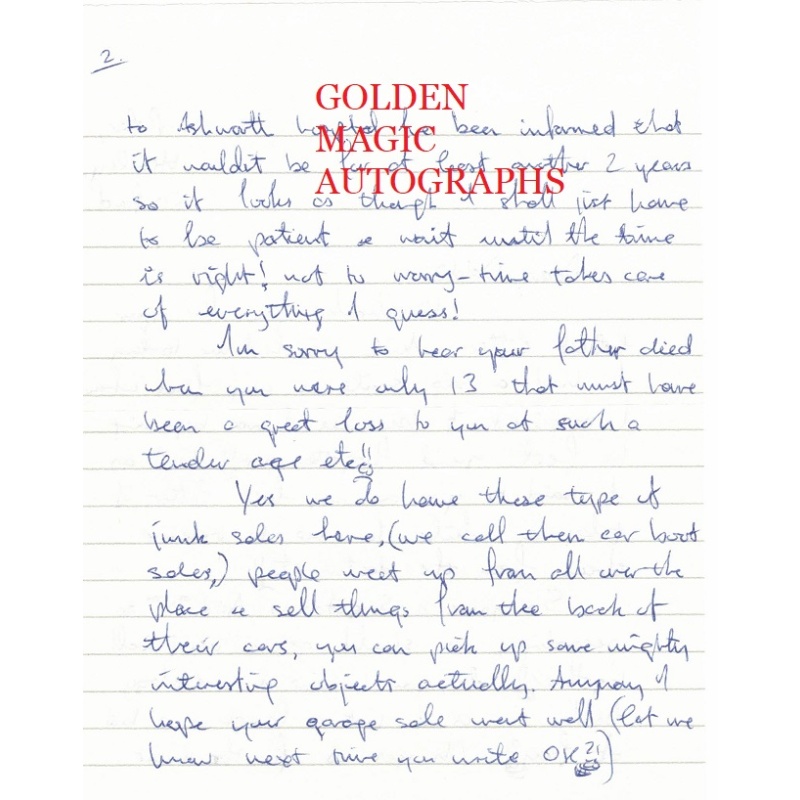 2.
GOLDEN
MAGIC
AUTOGRAPHS
to Ashworth hospital been informed that
it wouldn't be for at least another 2 years
so it looks as though I shall just have
to be patient & wait until the time
is right! not to worry – time takes care
of everything I guess!
I'm sorry to hear your father died
when you were only 13 that must have
been a great loss to you at such a
tender age etc!!
Yes we do have these type of
junk sales here, (we call them car boot
sales,) people meet up from all over the
place & sell things from the back of
their cars, you can pick up some mighty
interesting objects actually. Anyway I
hope your garage sale went well (let we
know next time you write OK?!)